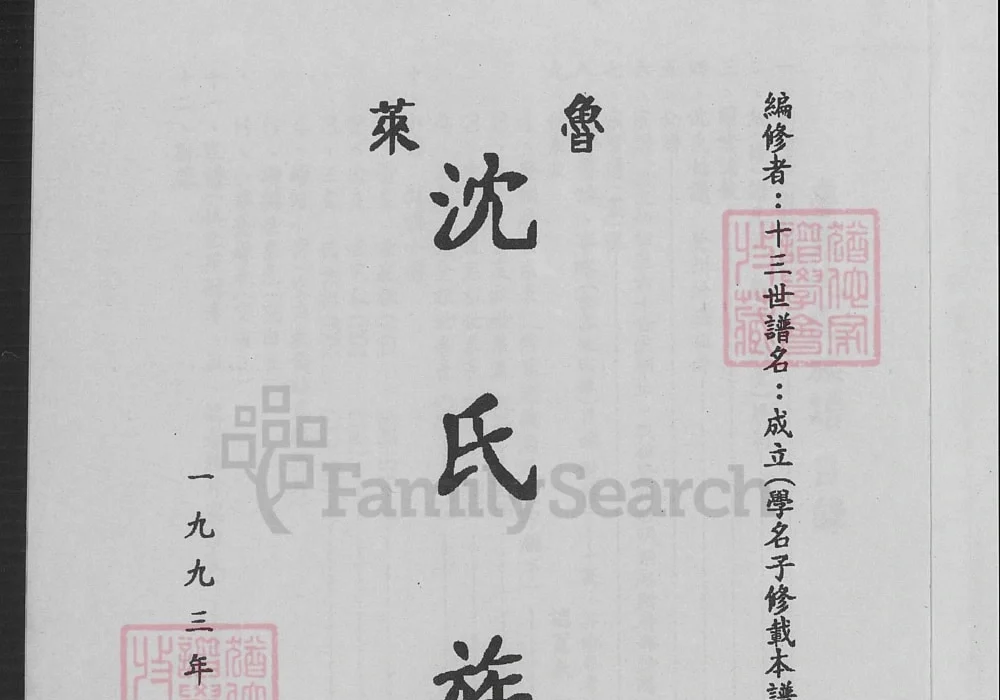 編修者：十三世譜名：成立（學名子修載本譜
魯萊
沈氏族
一九九三年
FamilySearch